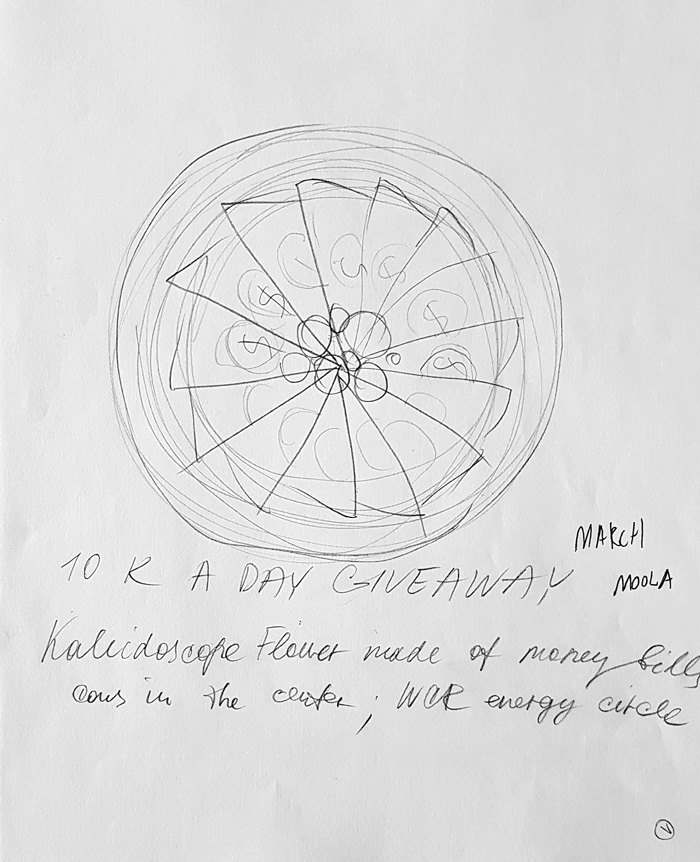 $ $ $ $ $ $
MARCH
MOOLA
10 K A DAY GIVEAWAY
Kaleidoscope Flower made of money bills
coins in the center; WCR energy circle